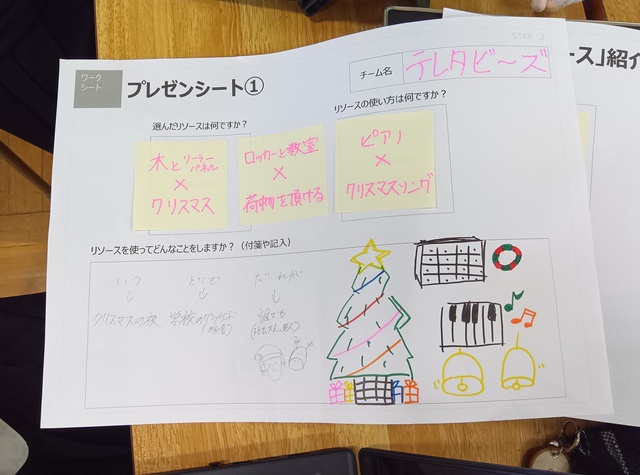 STEP 3
ワーク
シート
プレゼンシート①
チーム名
テレタビ〜ズ
ース」紹介
選んだリソースは何ですか？
リソースの使い方は何ですか？
木とソーラー
パネル
×
クリスマス
ロッカーと教室
×
荷物を預ける
ピアノ
×
クリスマスソング
リソースを使ってどんなことをしますか？（付箋や記入）
いつ
↓
クリスマスの夜
どこで
↓
学校の
だれが
↓
誰でも